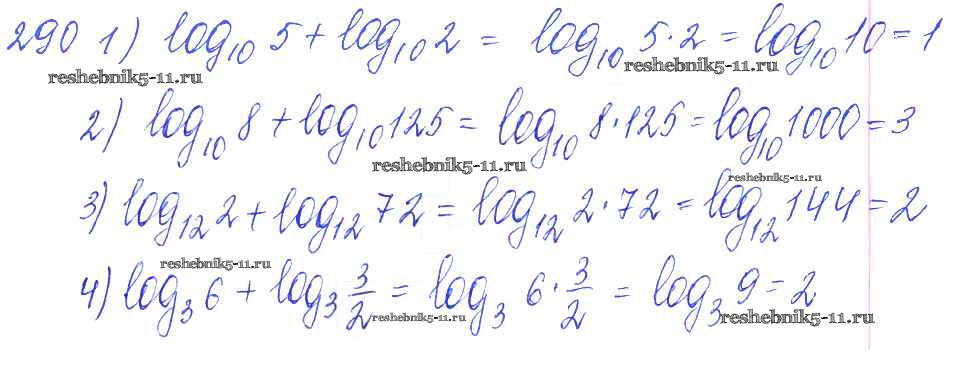 290 1) log₁₀ 5 + log₁₀ 2 = log₁₀ 5·2 = log₁₀ 10 = 1
reshebnik5-11.ru reshebnik5-11.ru
2) log₁₀ 8 + log₁₀ 125 = log₁₀ 8·125 = log₁₀ 1000 = 3
reshebnik5-11.ru reshebnik5-11.ru
3) log₁₂ 2 + log₁₂ 72 = log₁₂ 2·72 = log₁₂ 144 = 2
reshebnik5-11.ru
4) log₃ 6 + log₃ 3/2 = log₃ 6·3/2 = log₃ 9 = 2
reshebnik5-11.ru reshebnik5-11.ru